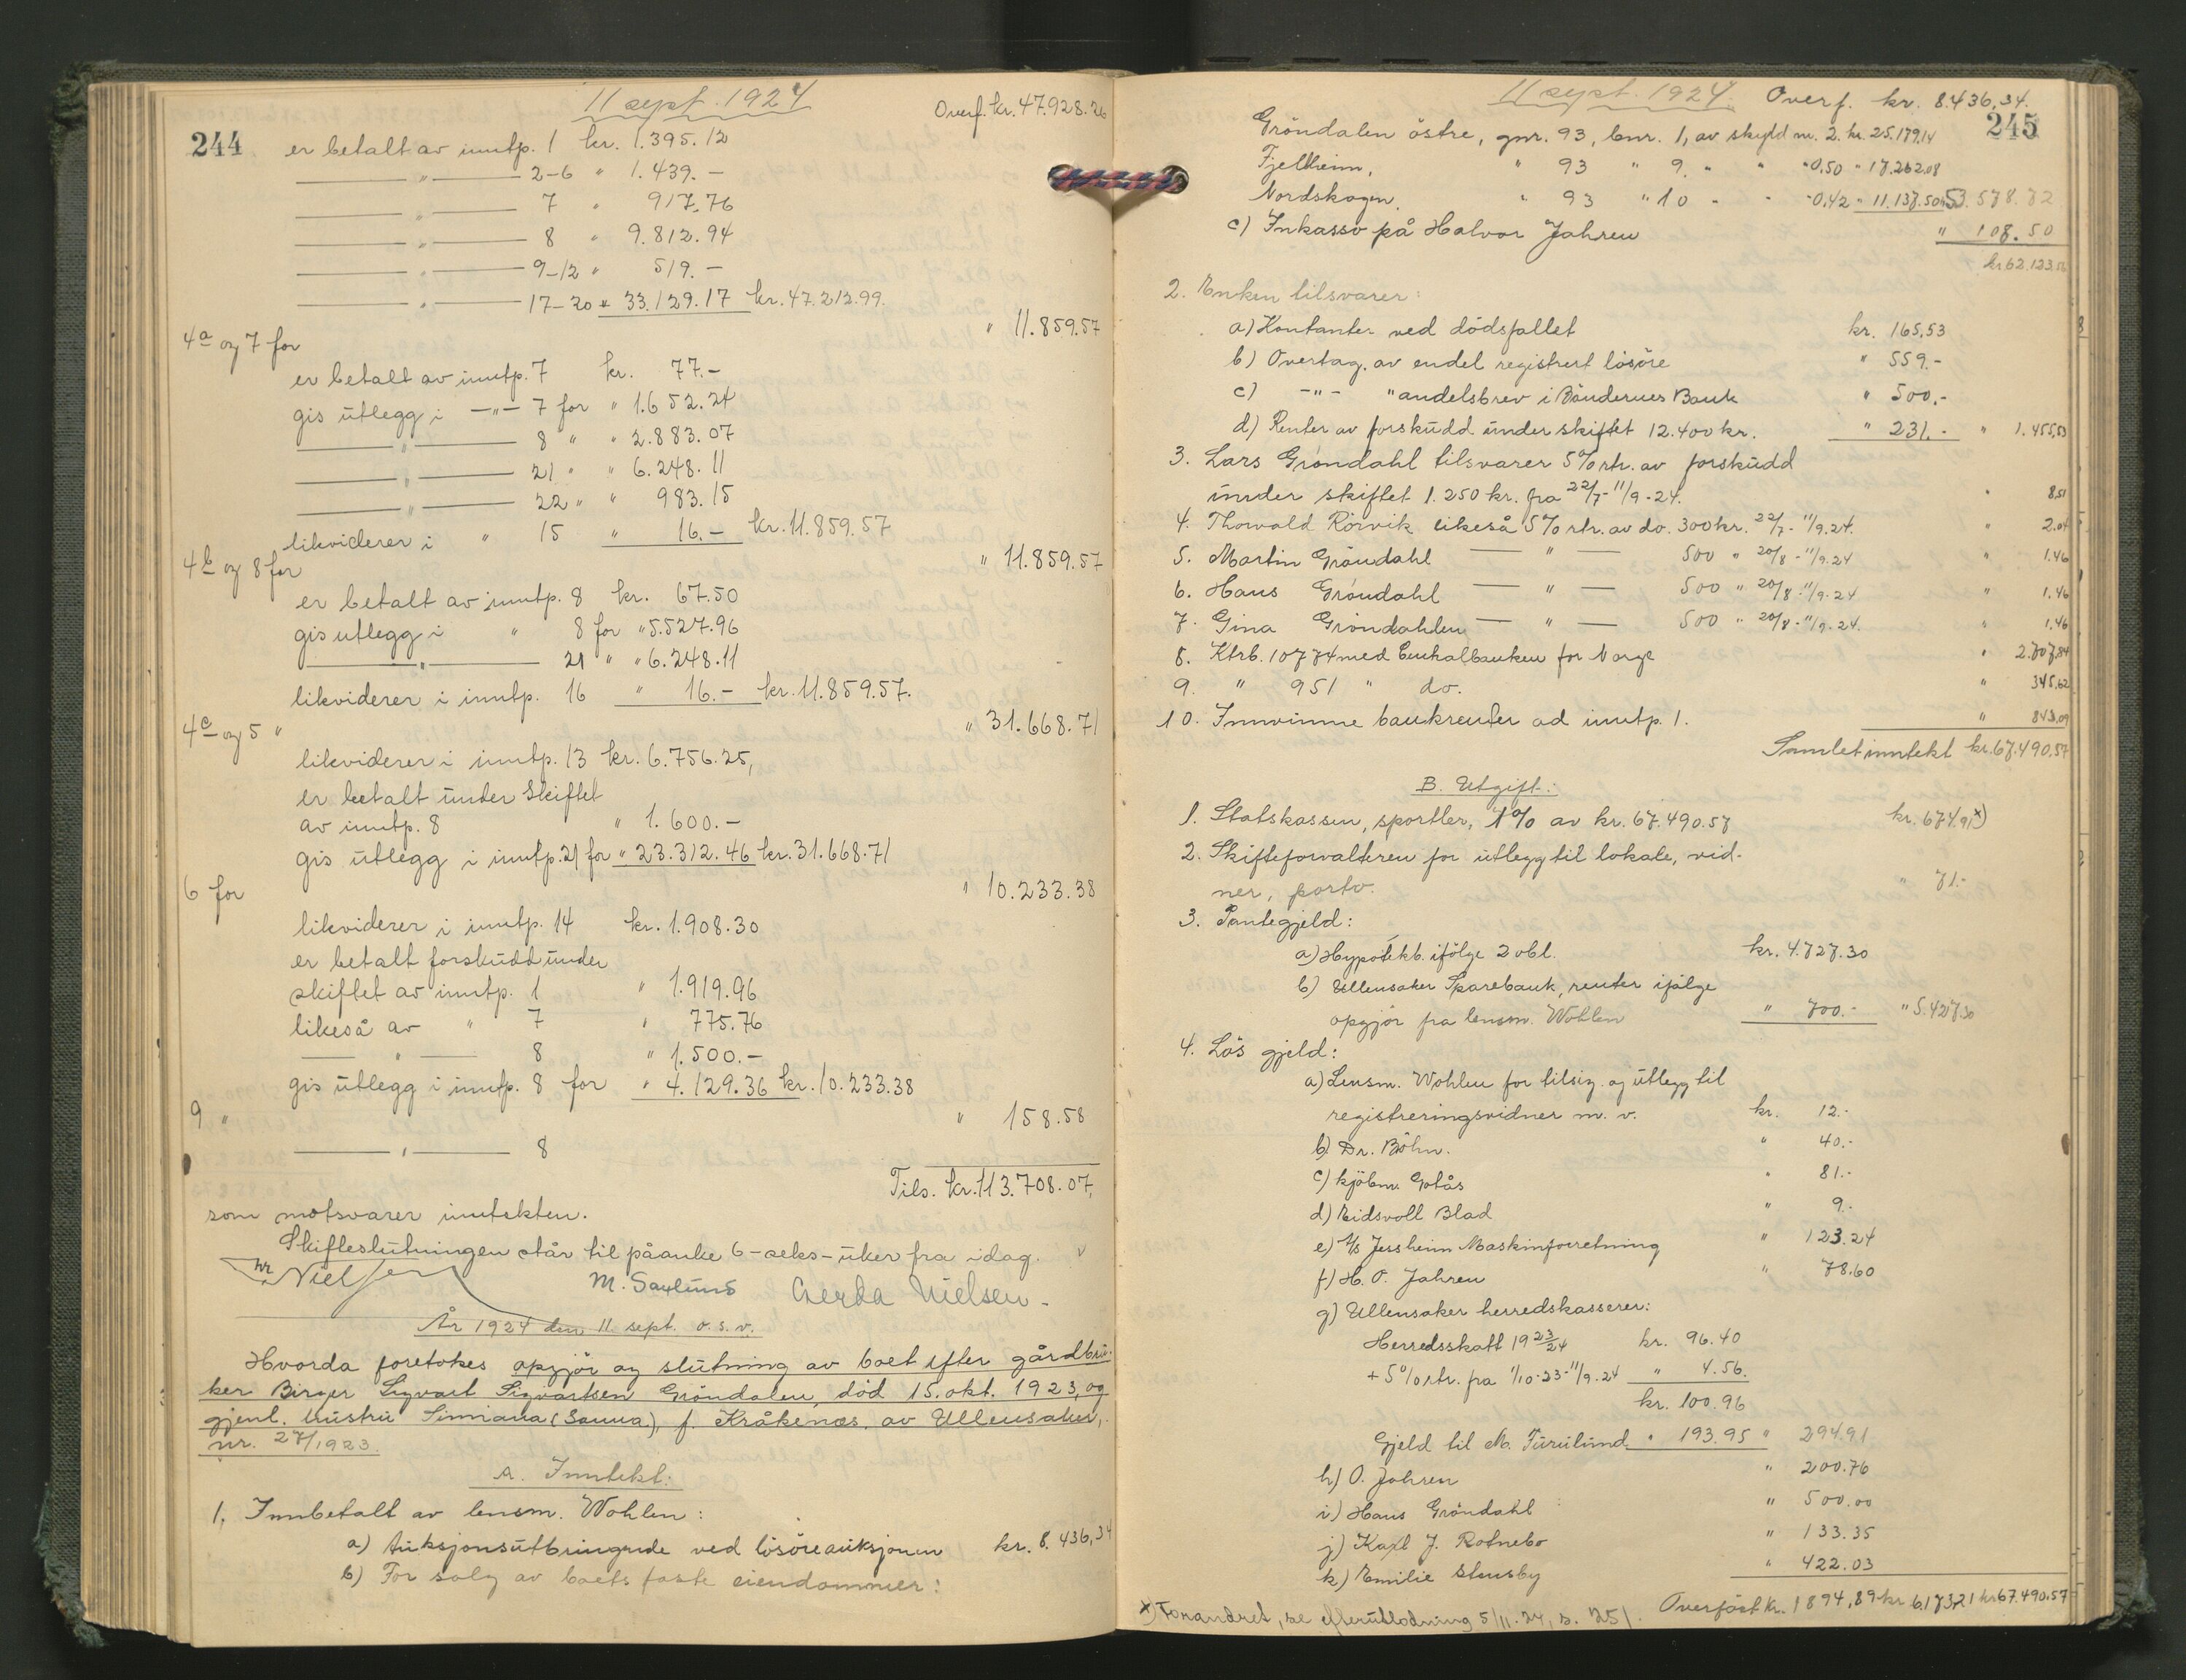 11 sept. 1924
244
Overf. kr. 47.928.26
er betalt av inntp. 1 kr. 1.395.12
—— " —— 2-6 " 1.439.-
—— " —— 7 " 917.76
—— " —— 8 " 9.812.94
—— " —— 9-12 " 519.-
—— " —— 17-20 " 33.129.17 kr. 47.212.99.
4a og 7 for " 11.859.57
er betalt av inntp. 7 kr. 77.-
gis utlegg i —"— 7 for " 1.652.24
—— " —— 8 " " 2.883.07
—— " —— 21 " " 6.248.11
—— " —— 22 " " 983.15
likviderer i " 15 " 16.- kr. 11.859.57
4b og 8 for " 11.859.57
er betalt av inntp. 8 kr. 67.50
gis utlegg i " 8 for " 5.527.96
—— " —— 21 " " 6.248.11
likviderer i inntp. 16 " 16.- kr. 11.859.57.
4c og 5 " " 31.668.71
likviderer i inntp. 13 kr. 6.756.25,
er betalt under skiftet
av inntp. 8 " 1.600.-
gis utlegg i inntp. 21 for " 23.312.46 kr. 31.668.71
6 for " 10.233.38
likviderer i inntp. 14 kr. 1.908.30
er betalt forskudd under
skiftet av inntp. 1 " 1.919.96
likeså av " 7 " 775.76
—— " —— 8 " 1.500.-
gis utlegg i inntp. 8 for " 4.129.36 kr. 10.233.38
9 " " 158.58
—— " —— 8
Tils. kr. 113.708.07,
som motsvarer inntekten.
Skifteslutningen står til påanke 6-seks-uker fra idag.
Nielsen M. Saxlund Gerda Nielsen-
År 1924 den 11 sept. o.s.v.
Hvorda foretokes opgjör og slutning av boet efter gårdbru-
ker Birger Sigvart Sigvartsen Gröndalen, död 15. okt. 1923, og
gjenl. hustru Sinniana (Sanna), f. Kråkenæs av Ullensaker,
nr. 27/1923.
A. Inntekt:
1. Innbetalt av lensm. Wohlen:
a) Auksjonsutbringende ved lösöreauksjonen kr. 8.436,34
b) For salg av boets faste eiendommer:
11 sept. 1924. Overf. kr. 8.436,34.
245
Gröndalen östre, gnr. 93, bnr. 1, av skyld m. 2. kr. 25.179.14
Fjellheim, " 93 " 9. " " " 0,50 " 17.262.08
Nordskogen, " 93 " 10 " " " 0,42 " 11.137.50 53.578.72
c) Inkasso på Halvor Jahren " 108.50
kr. 62.123.56
2. Enken tilsvarer:
a) Kontanter ved dödsfallet kr. 165,53
b) Overtag. av endel registrert lösöre " 559.-
c) -"- " andelsbrev i Böndernes Bank " 500.-
d) Renter av forskudd under skiftet 12.400 kr. " 231.- " 1.455,53
3. Lars Gröndahl tilsvarer 5% rtr. av forskudd
under skiftet 1.250 kr. fra 22/7-11/9-24. " 8,51
4. Thorvald Rörvik likeså 5% rtr. av do. 300 kr. 22/7-11/9.24. " 2.04
5. Martin Gröndahl — " — 500 " 20/8-11/9.24 " 1.46
6. Hans Gröndahl — " — 500 " 20/8-11/9.24 " 1.46
7. Gina Gröndahlen — " — 500 " 20/8-11/9.24. " 1.46
8. Ktrb. 10774 med Centralbanken for Norge " 2.707,84
9. " 951 " do. " 345,62
10. Innvunne bankrenter ad inntp. 1. " 843,09
Samlet inntekt kr. 67.490,57
B. Utgift:
1. Statskassen, sportler, 1% av kr. 67.490.57 kr. 674.91 x)
2. Skifteforvalteren for utlegg til lokale, vid-
ner, porto. " 71.-
3. Pantegjeld:
a) Hypotekb. ifölge 2 obl. kr. 4.727.30
b) Ullensaker Sparebank, renter ifölge
opgjör fra lensm. Wohlen " 700.- " 5.427.30
4. Lös gjeld:
a) Lensm. Wohlen for tilsig. og utlegg til
registreringsvidner m. v. kr. 12.-
b) Dr. Böhn. " 40.-
c) kjöbm. Gotås " 81.-
d) Eidsvoll Blad " 9.-
e) A/s Jessheim Maskinforretning " 123.24
f) H. O. Jahren " 78.60
g) Ullensaker herredskasserer:
Herredsskatt 1923/24 kr. 96.40
+ 5% rtr. fra 1/10-23-11/9-24 " 4.56.
kr. 100.96
Gjeld til M. Furulund " 193.95 " 294.91
h) O. Jahren " 200.76
i) Hans Gröndahl " 500.00
j) Karl J. Rotnebo " 133.35
k) Emilie Stensby " 422.03
Overfört kr. 1894,89 kr. 6.173,21 kr. 67.490.57
x) Forandret, se efterutlodning 5/11.24, s. 251.